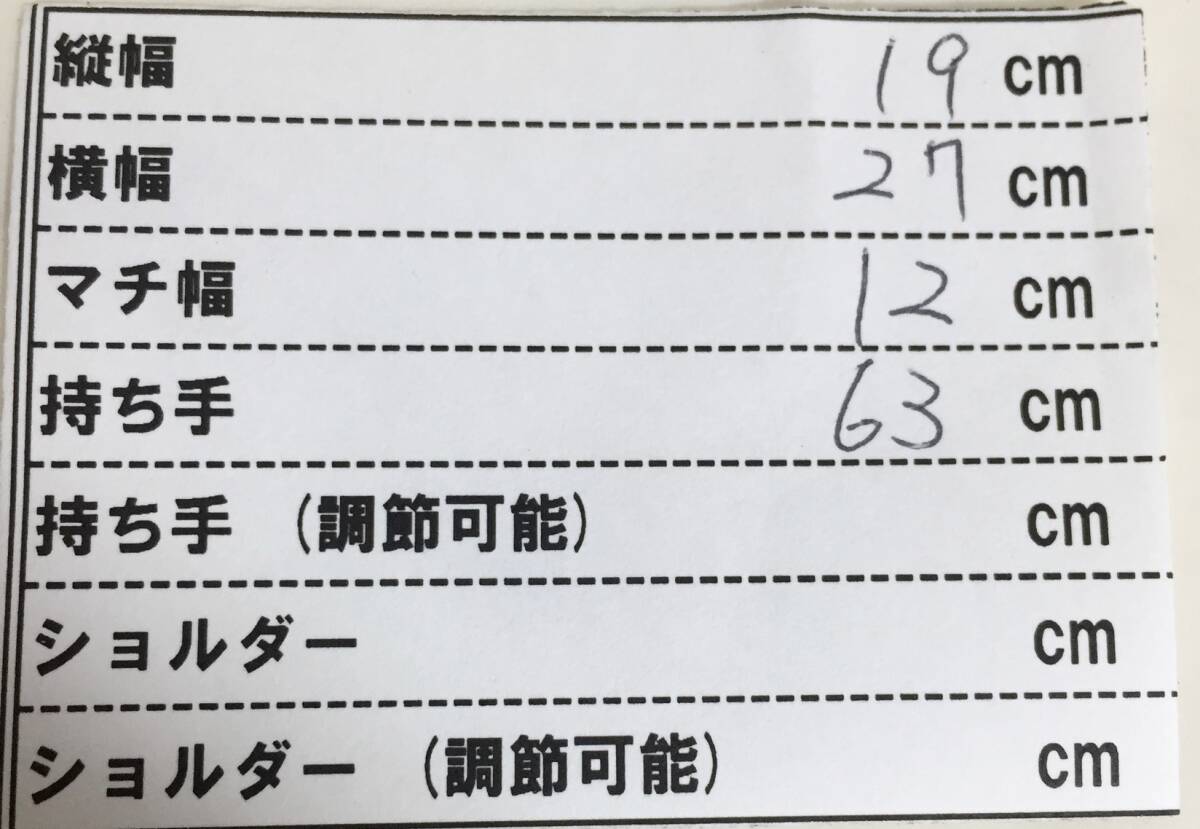 縦幅 19 cm
横幅 27 cm
マチ幅 12 cm
持ち手 63 cm
持ち手 (調節可能) cm
ショルダー cm
ショルダー (調節可能) cm